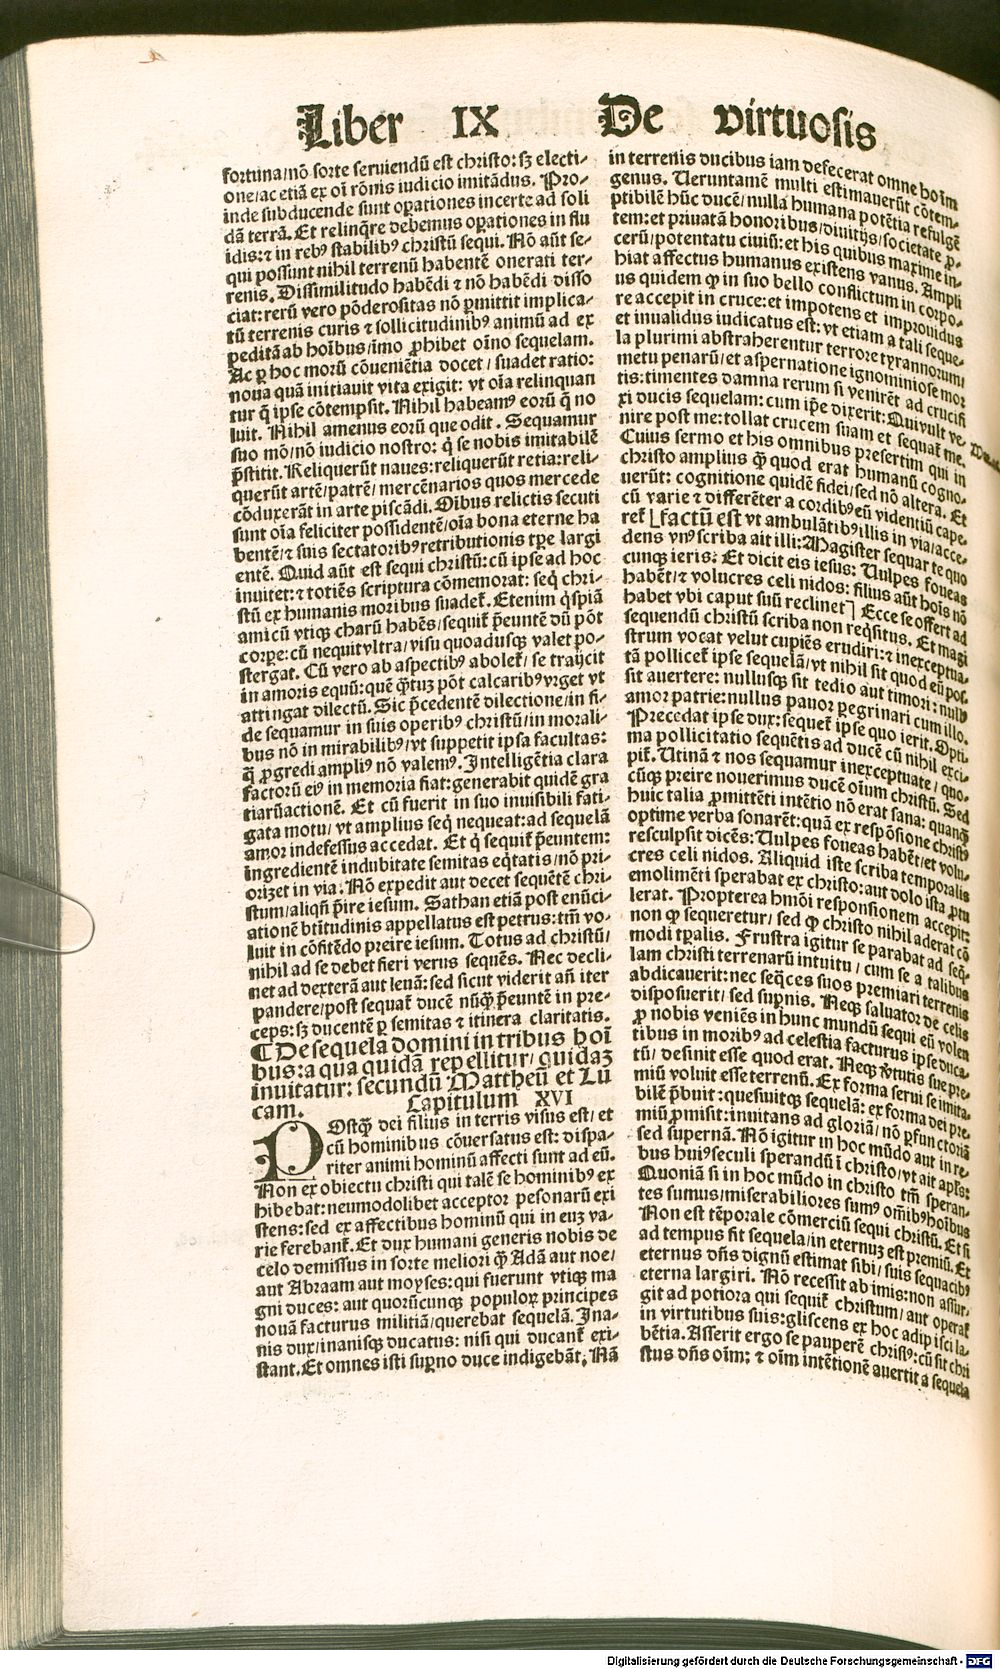 Liber IX De virtuosis
fortuna/nō sorte seruiendū est christo: sꝫ electi-
one/ac etiā ex oī rōnis iudicio imitādus. Pro-
inde subducende sunt oꝑationes incerte ad soli
dā terrā. Et relinq̄re debemus oꝑationes in flu
idis: ⁊ in rebꝰ stabilibꝰ christū sequi. Nō aūt se-
qui possunt nihil terrenū habentē onerati ter-
renis. Dissimilitudo habēdi ⁊ nō habēdi disso
ciat: rerū vero pōderositas nō ꝑmittit implica-
tū terrenis curis ⁊ sollicitudinibꝰ animū ad ex
peditā ab hoībus/imo ꝓhibet oīno sequelam.
Ac ꝑ hoc morū cōueniētia docet/suadet ratio:
noua quā initiauit vita exigit: vt oīa relinquan
tur q̄ ipse cōtempsit. Nihil habeamꝰ eorū q̄ no
luit. Nihil amenus eorū que odit. Sequamur
suo mō/nō iudicio nostro: q̄ se nobis imitabilē
p̄stitit. Reliquerūt naues: reliquerūt retia: reli-
querūt artē/patrē/mercēnarios quos mercede
cōduxerāt in arte piscādi. Oībus relictis secuti
sunt oīa feliciter possidentē/oīa bona eterne ha
bentē/⁊ suis sectatoribꝰ retributionis tꝑe largi
entē. Quid aūt est sequi christū: cū ipse ad hoc
inuitet: ⁊ totiēs scriptura cōmemorat: seq̄ chri-
stū ex humanis moribus suadet̄. Etenim q̄spiā
ami cū vtiqꝫ charū habēs/sequit̄ p̄euntē dū pōt
corꝑe: cū nequit vltra/visu quoadusqꝫ valet ꝓ-
stergat. Cū vero ab aspectibꝰ abolet̄/se traijcit
in amoris equū: quē q̄tuꝫ pōt calcaribꝰ vrget vt
attingat dilectū. Sic p̄cedentē dilectione/in fi-
de sequamur in suis operibꝰ christū/in morali-
bus nō in mirabilibꝰ/vt suppetit ipsa facultas:
q̄ ꝓgredi ampliꝰ nō valemꝰ. Intelligētia clara
factorū eiꝰ in memoria fiat: generabit quidē gra
tiarū actionē. Et cū fuerit in suo inuisibili fati-
gata motu/vt amplius seq̄ nequeat: ad sequelā
amor indefessus accedat. Et q̄ sequit̄ p̄euntem:
ingredientē indubitate semitas eq̄tatis/nō pri-
orizet in via. Nō expedit aut decet sequētē chri-
stum/aliqn̄ p̄ire iesum. Sathan etiā post enūci-
ationē btītudinis appellatus est petrus: tm̄ vo-
luit in cōfitēdo preire iesum. Totus ad christū/
nihil ad se debet fieri verus sequēs. Nec decli-
net ad dexterā aut leuā: sed sicut viderit añ iter
pandere/post sequat̄ ducē nūq̄ p̄euntē in pre-
ceps: sꝫ ducentē ꝑ semitas ⁊ itinera claritatis.
¶ De sequela domini in tribus hoī
bus: a qua quidā repellitur/quidaꝫ
inuitatur: secundū Mattheū et Lu
cam. Capitulum XVI
POstq̄ dei filius in terris visus est/et
cū hominibus cōuersatus est: dispa-
riter animi hominū affecti sunt ad eū.
Non ex obiectu christi qui talē se hominibꝰ ex
hibebat: neumodolibet acceptor pesonarū exi
stens: sed ex affectibus hominū qui in euꝫ va-
rie ferebant̄. Et dux humani generis nobis de
celo demissus in sorte meliori q̄ Adā aut noe/
aut Abraam aut moyses: qui fuerunt vtiqꝫ ma
gni duces: aut quorūcunqꝫ populoꝝ principes
nouā facturus militiā/querebat sequelā. Ina-
nis dux/inanisqꝫ ducatus: nisi qui ducant̄ exi-
stant. Et omnes isti suꝑno duce indigebāt. Nā
in terrenis ducibus iam defecerat omne hoīm
genus. Ueruntamē multi estimauerūt cōtem-
ptibilē hūc ducē/nulla humana potētia refulgē
tem: et priuatā honoribus/diuitijs/societate ꝓ-
cerū/potentatu ciuiū: et his quibus maxime in-
hiat affectus humanus existens vanus. Ampli
us quidem ꝙ in suo bello conflictum in corpo-
re accepit in cruce: et impotens et improuidus
et inualidus iudicatus est: vt etiam a tali seque-
la plurimi abstraherentur terrore tyrannorum/
metu penarū/et aspernatione ignominiose mor
tis: timentes damna rerum si venirēt ad crucifi
xi ducis sequelam: cum ip̄e dixerit: Qui vult ve-
nire post me: tollat crucem suam et sequat̄ me.
Cuius sermo et his omnibus presertim qui in
christo amplius q̄ quod erat humanū cogno-
uerūt: cognitione quidē fidei/sed nō altera. Et
cū varie ⁊ differēter a cordibꝰ eū videntiū cape-
ret̄ [factū est vt ambulātibꝰ illis in via/acce-
dens vnꝰ scriba ait illi: Magister sequar te quo
cunqꝫ ieris: Et dicit eis iesus: Uulpes foueas
habēt/⁊ volucres celi nidos: filius aūt hoīs nō
habet vbi caput suū reclinet] Ecce se offert ad
sequendū christū scriba non req̄situs. Et magi
strum vocat velut cupiēs erudiri: ⁊ inexceptua-
tā pollicet̄ ipse sequelā/vt nihil sit quod eū pos-
sit auertere: nullusqꝫ sit tedio aut timori: nullꝰ
amor patrie: nullus pauor ꝑegrinari cum illo.
Precedat ipse dux: sequet̄ ipse quo ierit. Opti-
ma pollicitatio sequētis ad ducē cū nihil exci-
pit̄. Utinā ⁊ nos sequamur inexceptuate/quo-
cūqꝫ preire nouerimus ducē oīum christū. Sed
huic talia ꝓmittēti intētio nō erat sana: quanq̄
optime verba sonarēt: quā ex respōsione christꝰ
resculpsit dicēs: Uulpes foueas habēt/et volu-
cres celi nidos. Aliquid iste scriba temporalis
emolimēti sperabat ex christo: aut dolo ista ꝓtu
lerat. Propterea hmōi responsionem accepit:
non ꝙ sequeretur/sed ꝙ christo nihil aderat cō
modi tꝑalis. Frustra igitur se parabat ad seq̄-
lam christi terrenarū intuitu/cum se a talibus
abdicauerit: nec seq̄ces suos premiari terrenis
disposuerit/sed suꝑnis. Neqꝫ saluator de celis
ꝓ nobis veniēs in hunc mundū sequi eū volen
tibus in moribꝰ ad celestia facturus ipse duca-
tū/desinit esse quod erat. Neqꝫ v̄tutis sue pre-
miū voluit esse terrenū. Ex forma serui se imita
bilē p̄buit: quesuitqꝫ sequelā: ex forma dei pre-
miū ꝓmisit: inuitans ad gloriā/nō ꝑfunctoriā
sed supernā. Nō igitur in hoc mūdo aut in re-
bus huiꝰ seculi sperandū ī christo/vt ait apl̄s:
Quoniā si in hoc mūdo in christo tm̄ speran-
tes sumus/miserabiliores sumꝰ om̄ibꝰ hoībus
Non est tēporale cōmerciū sequi christū. Et si
ad tempus fit sequela/in eternuꝫ est premiū. Et
eternus dn̄s dignū estimat sibi/suis sequacibꝰ
eterna largiri. Nō recessit ab imis: non assur-
git ad potiora qui sequit̄ christum/aut operat̄
in virtutibus suis: gliscens ex hoc adipisci la-
bētia. Asserit ergo se pauperē christꝰ: cū sit chri
stus dn̄s oīm: ⁊ oīm intētionē auertit a sequela